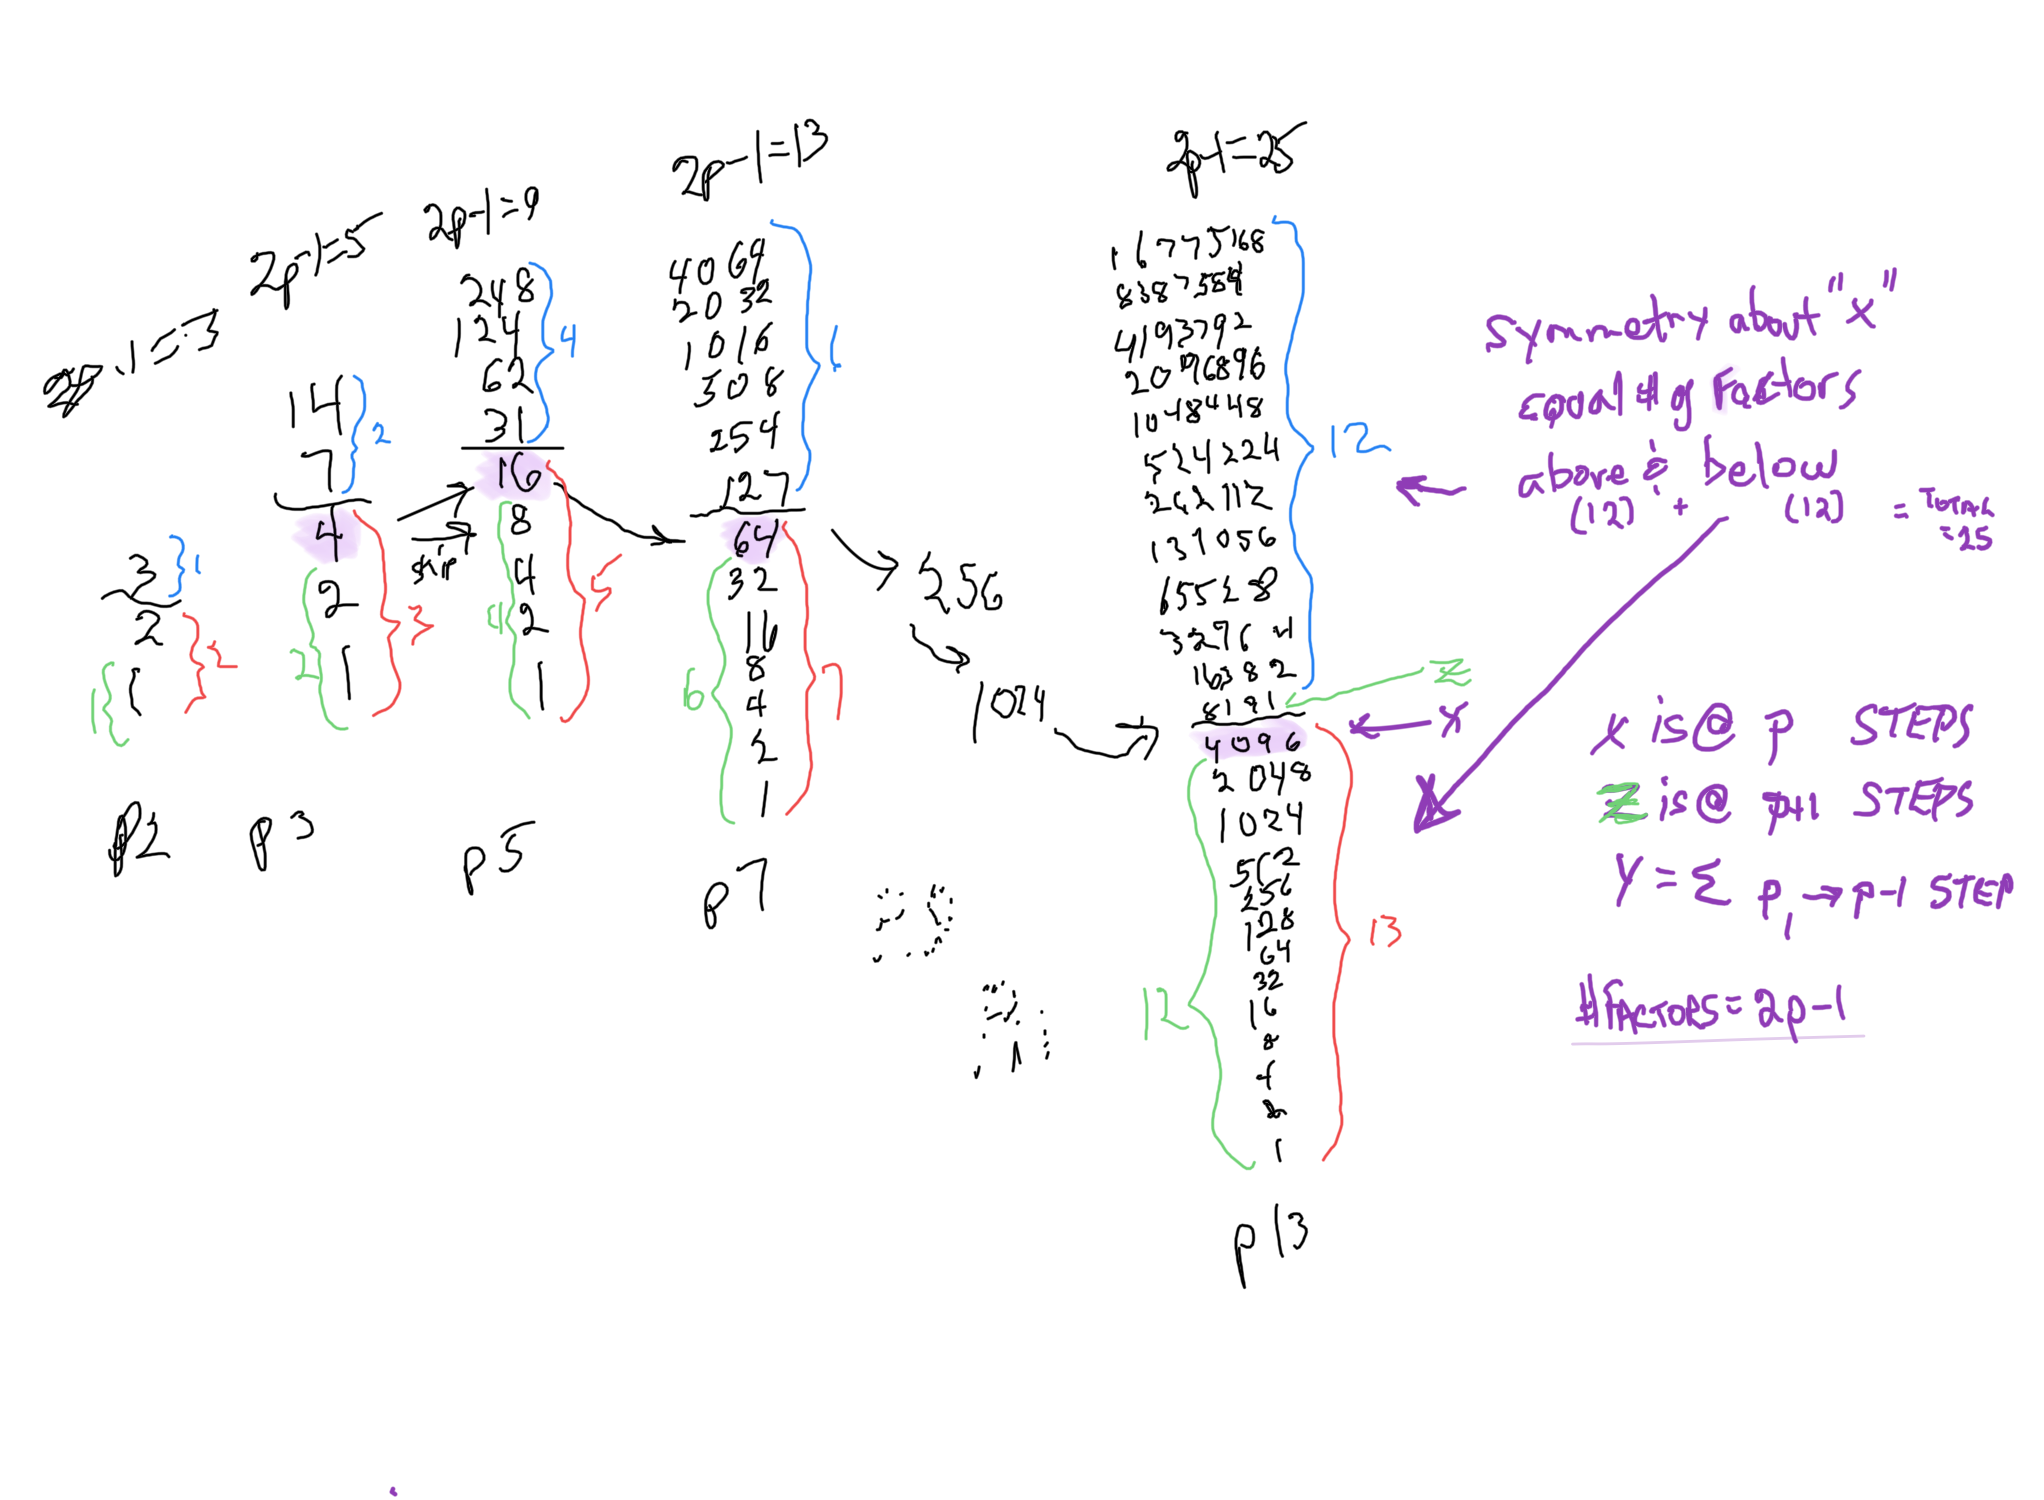 2p-1=3
3
2
1
1
2
1
p2
2p-1=5
14
7
4
2
1
2
3
2
p3
skip
2p-1=9
248
124
62
31
16
8
4
2
1
4
5
4
p5
2p-1=13
4064
2032
1016
508
254
127
64
32
16
8
4
2
1
6
7
6
p7
256
1024
2p-1=25
16775168
8387584
4193792
2096896
1048448
524224
262112
131056
65528
32764
16382
8191
4096
2048
1024
512
256
128
64
32
16
8
4
2
1
12
13
12
p13
z
x
Symmetry about "x"
equal # of Factors
above & below
(12) + (12) = TOTAL
=25
x is @ p STEPS
Z is @ p+1 STEPS
Y = Σ p1 → p-1 STEP
#FACTORS = 2p-1